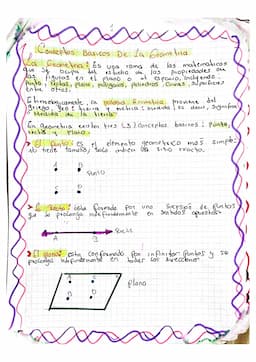 Conceptos Basicos De La Geometria
La Geometria: Es una rama de las matematicas
que se ocupa del estudio de las propiedades de
las figuras en el plano o el espacio, incluyendo:
punto, rectas, plano, poligonos, poliedros, Curvas, superficies
entre otras.
Etimologicamente, la palabra Geometria proviene del
griego, Geo: tierra y metria: medida; es decir, significa
Medida de la tierra
En Geometria existen tres (3) conceptos basicos: Punto,
recta y plano.
El punto: es el elemento geometrico mas simple:
no tiene tamaño, solo
Punto
La recta: esta formada por una sucesion de puntos
que se prolonga indefinidamente en sentidos opuestos
Recta
A B
El plano: esta conformado por infinitos puntos y se
prolonga indefinidamente en todas las direcciones
plano